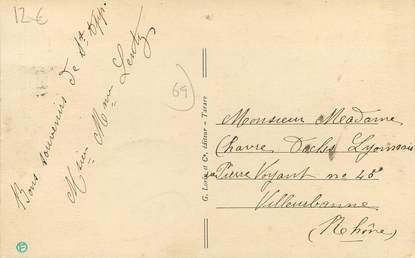 12€
Bons souvenirs de St
Mr Mme Lentz
69
G. et Cie, éditeur - Tarare
Monsieur Meadame
Chavre Lyonnais
Pierre Voyant no 45
Villeurbanne
(Rhône)